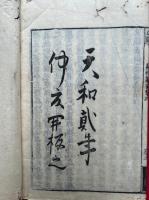 天和貳年
仲夏開板之